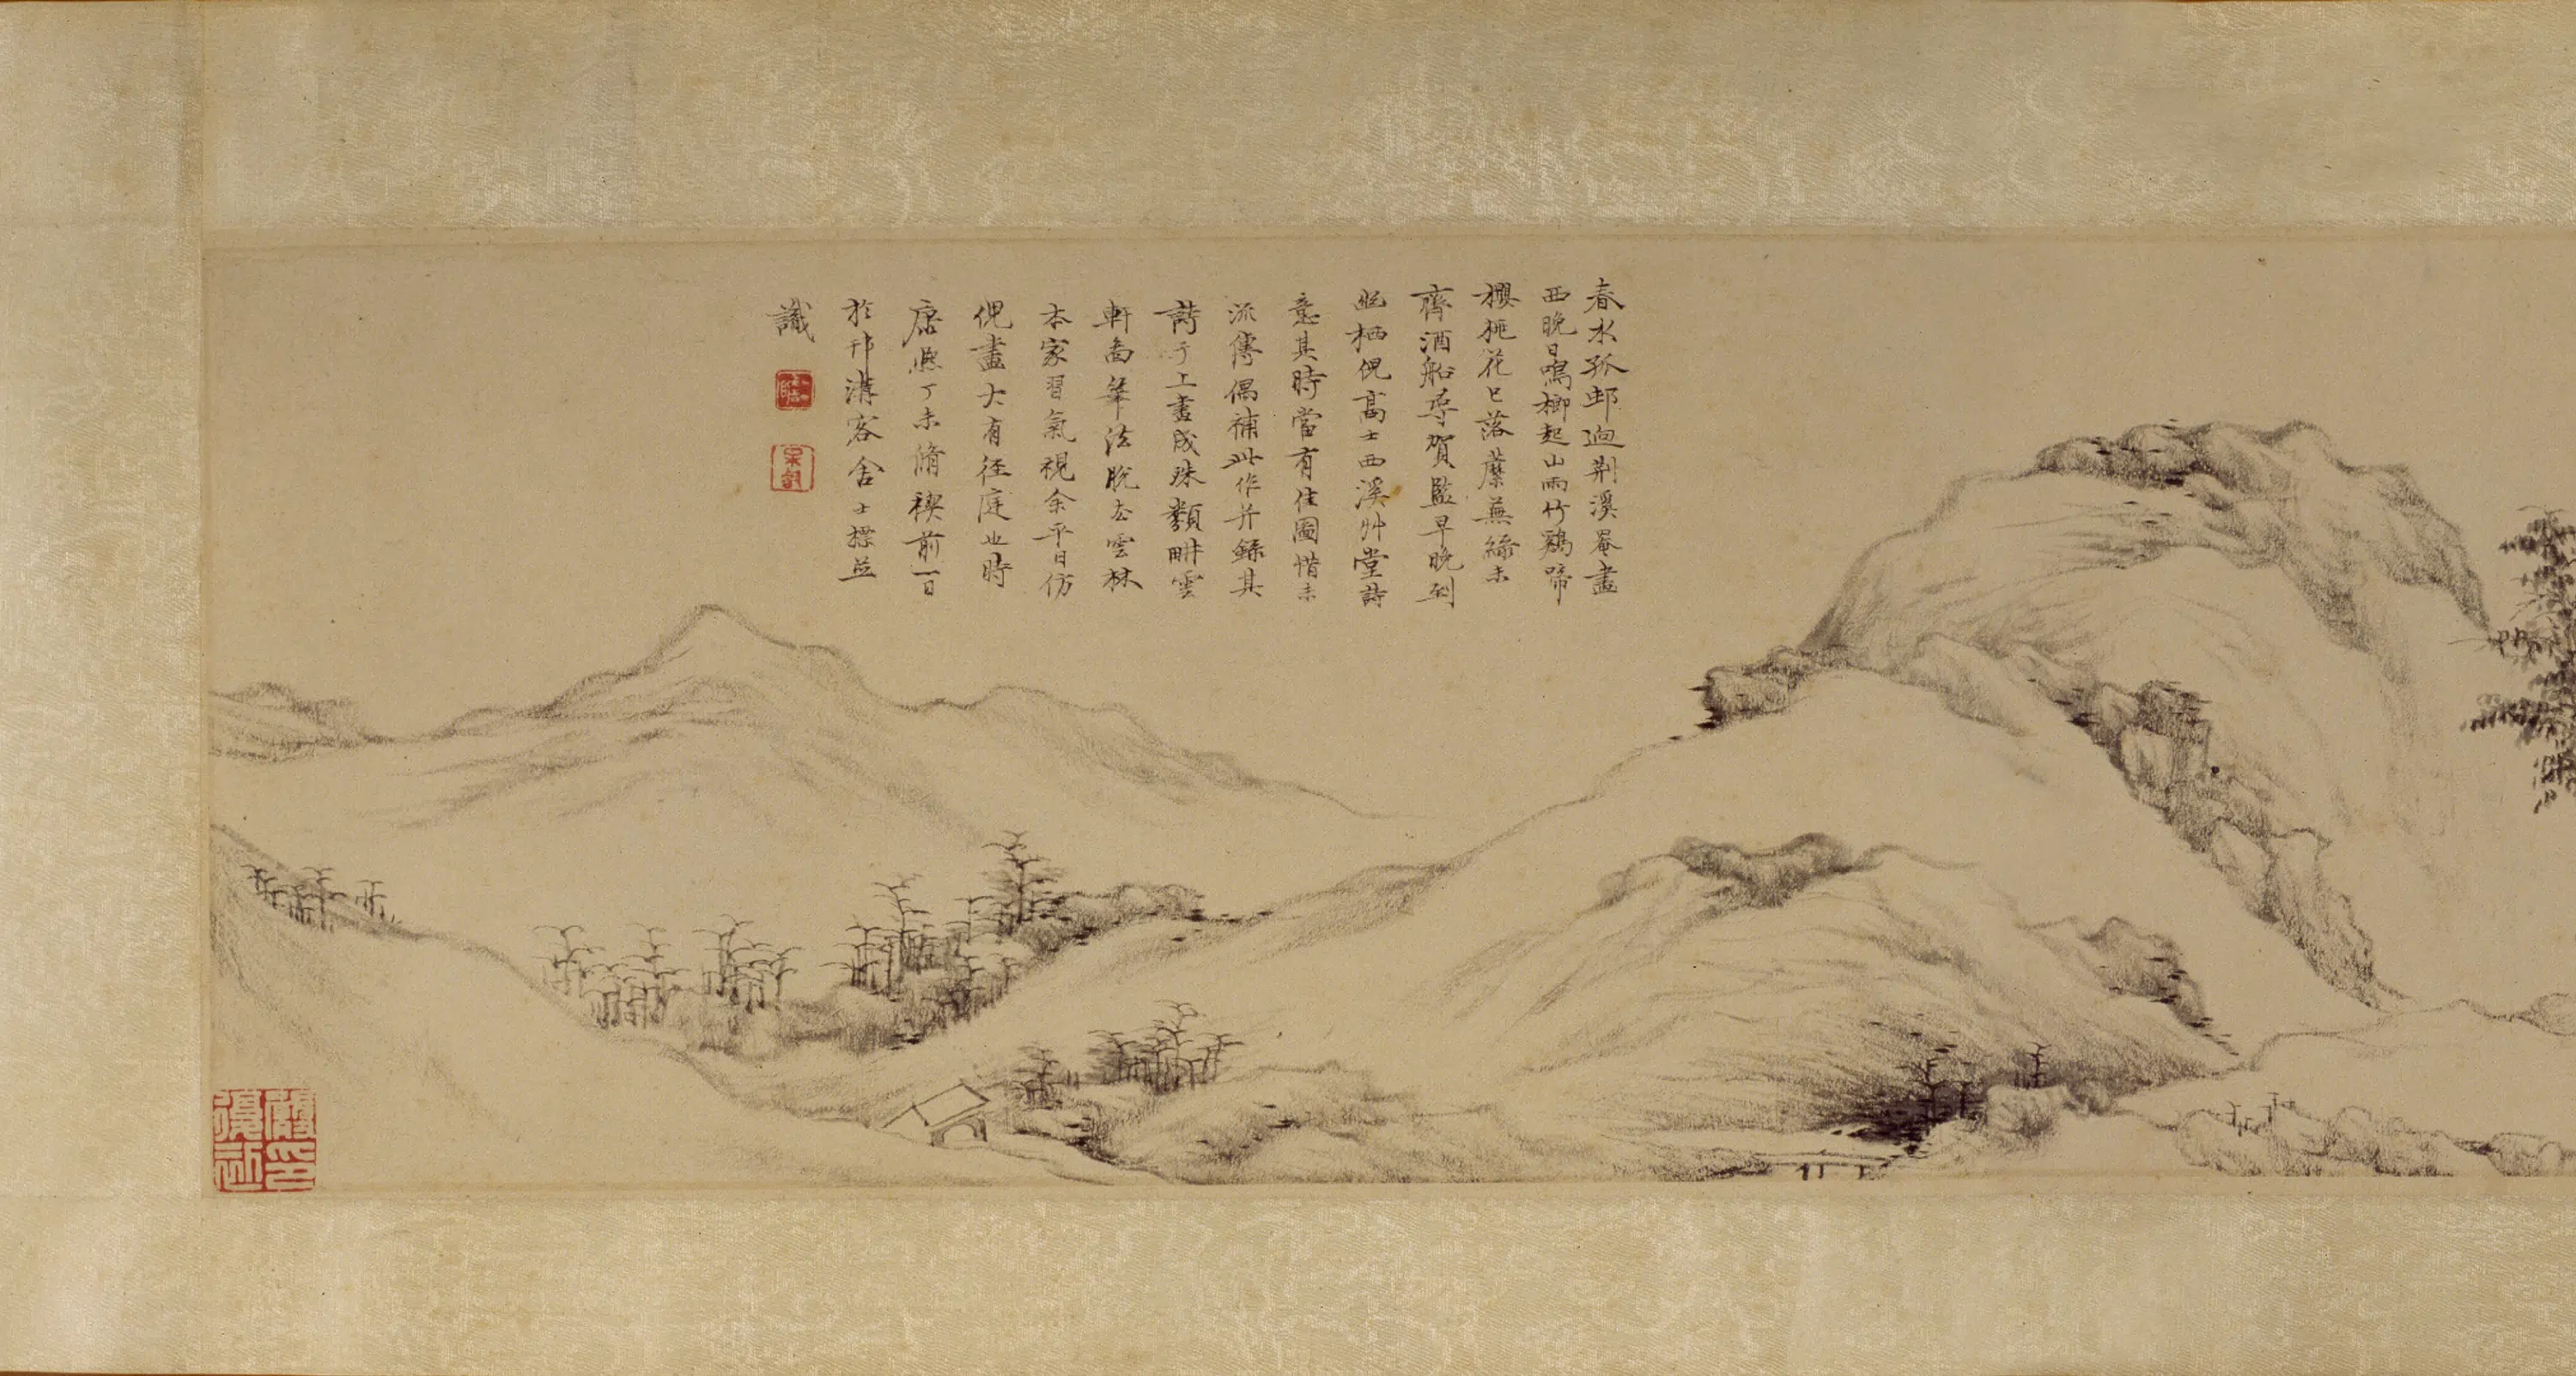 春水孤邨迥荆溪罨畫
西晚日鳴榔起山雨竹鷄啼
櫻桃花已落蘪蕪綠未
齊酒船尋賀監早晚到
幽栖倪高士西溪艸堂詩
意其時當有佳圖惜未
流傳偶補此作并錄其
詩于上畫成殊類畊雲
軒而筆法脫去雲林
本家習氣視余平日仿
倪畫大有徑庭也時
康熙丁未脩禊前一日
於邗溝客舍士標並
識